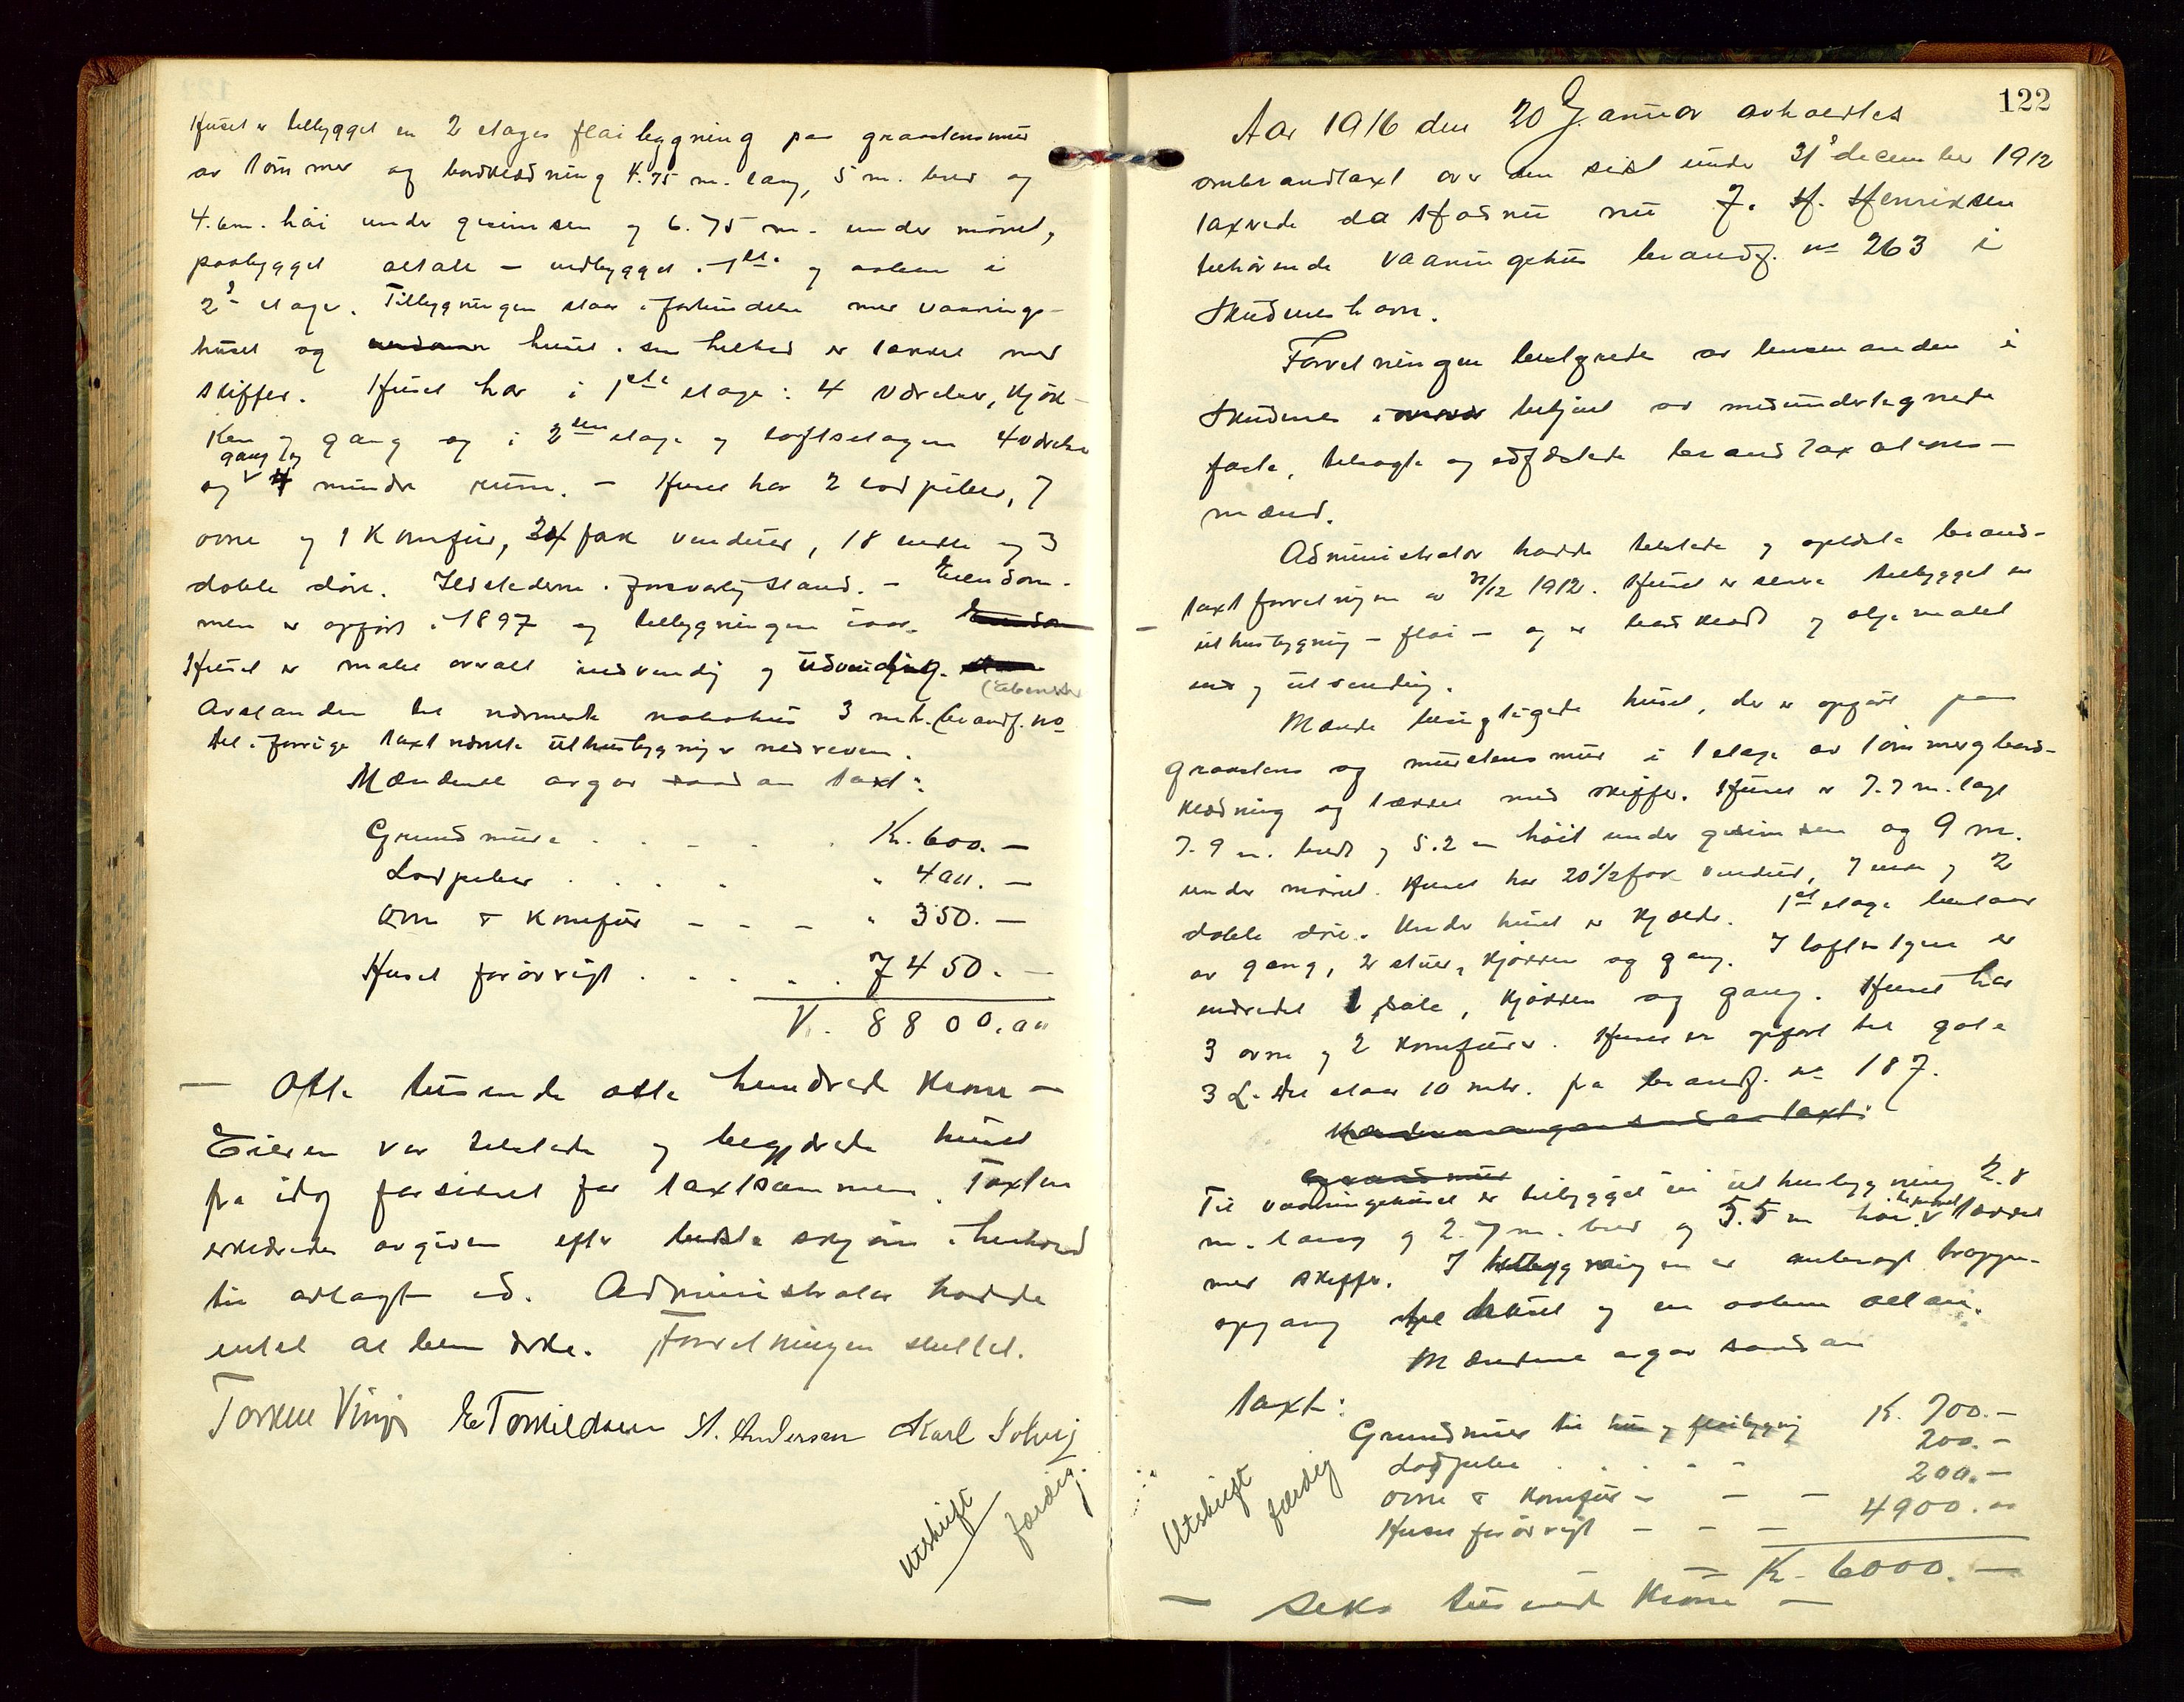 Huset er tilbygget en 2 etages fløibygning paa graastensmur
av tømmer og bordklædning 4.75 m. lang, 5 m. bred og
4.6m. høi under gesimsen og 6.75 m. under mønet,
paabygget altan – indbygget i 1ste og aapen i
2den etage. Tilbygningen staar i forbindelse med vaanings-
huset og huset i sin helhed er tækket med
skiffer. Huset har i 1ste etage: 4 værelser, kjøk-
ken og gang og i 2den etage og loftsetagen 4 værelser
gang og
og 4 mindre rum. – Huset har 2 lodpiber, 7
ovne og 1 komfur, 24 fak vinduer, 18 enkle og 3
doble døre. Ildstederne i forsvarlig stand. – Eiendom-
men er opført i 1897 og tilbygningen iaar.
Huset er malt overalt indvendig og udvendig.
Avstanden til nærmeste nabohus 3 mtr. (brandf. no
Det i forrige taxt nævnte uthusbygning er nedreven.
Mændene avgav saadan taxt:
Grundmure . . . . . K. 600. –
Lodpiber . . . . " 400. –
Ovne & komfur – – – " 350. –
Huset forøvrigt . . . . . 7450. –
K. 8800.00
– Otte tusende otte hundrede kroner –
Eieren var tilstede og begjærede huset
fra idag forsikret for taxtsummen. Taxten
erklæredes avgiven efter bedste skjøn i henhold
til avlagt ed. Administrator hadde
intet at bemærke. Forretningen sluttet.
Torkel Vinje E Torkildsen A. Andersen Karl Solvig
Utskrift
færdig.
122
Aar 1916 den 20 Januar avholdtes
ombrandtaxt over den sidst under 31 december 1912
taxerede da nu J. H. Henriksen
tilhørende vaaningshus brandf. no 263 i
Skudeneshavn.
Forretningen bestyredes av lensmanden i
Skudenes betjent av medundertegnede
faste, tiltagte og edfæstede brandtaxations-
mænd.
Administrator hadde tilstede og oplæste brand-
taxtforretningen av 31/12 1912. Huset er senere tilbygget en
uthusbygning – fløi – og er bordklædt og oljemalet
ind og utvendig.
Mænde besigtigede huset, der er opført paa
graastens og murstensmur i 1 etage av tømmer og bord-
klædning og tækket med skiffer. Huset er 7.7 m. langt
7.9 m. bredt og 5.2 m høit under gesimsen og 9 m.
under mønet. Huset har 20 1/2 fak vinduer, 7 enkle og 2
doble døre. Under huset er kjælder. 1ste etage bestaar
av gang, 2 stuer, kjøkken og gang. I loftsetagen er
indredet 1 sale, kjøkken og gang. Huset har
3 ovne og 2 komfurer. Huset er opført til gate
3 L. Det staar 10 mtr. fra brandf. no 187.
Mændene avgav saadan taxt:
Grundmur
Til vaaningshuset er tilbygget en uthusbygning 2.8
m. lang og 2.7 m. bred og 5.5 m høi tækket
med skiffer. I tilbygningen er anbragt trappe-
opgang til huset og en aapen altan.
Mændene avgav saadan
taxt:
Grundmur til hus og fløibygning K. 700. –
Lodpiber . . . . – – 200. –
Ovne & komfur – – – 200. –
Huset forøvrigt – – – 4900.00
– K. 6000. –
– Seks tusende kroner –
Utskrift
færdig